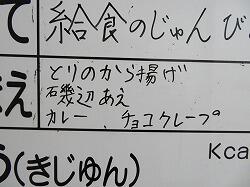 て 給食のじゅんび
とりのから揚げ
え 石幾辺あえ
カレー、チョコクレープ
う(きじゅん) Kca